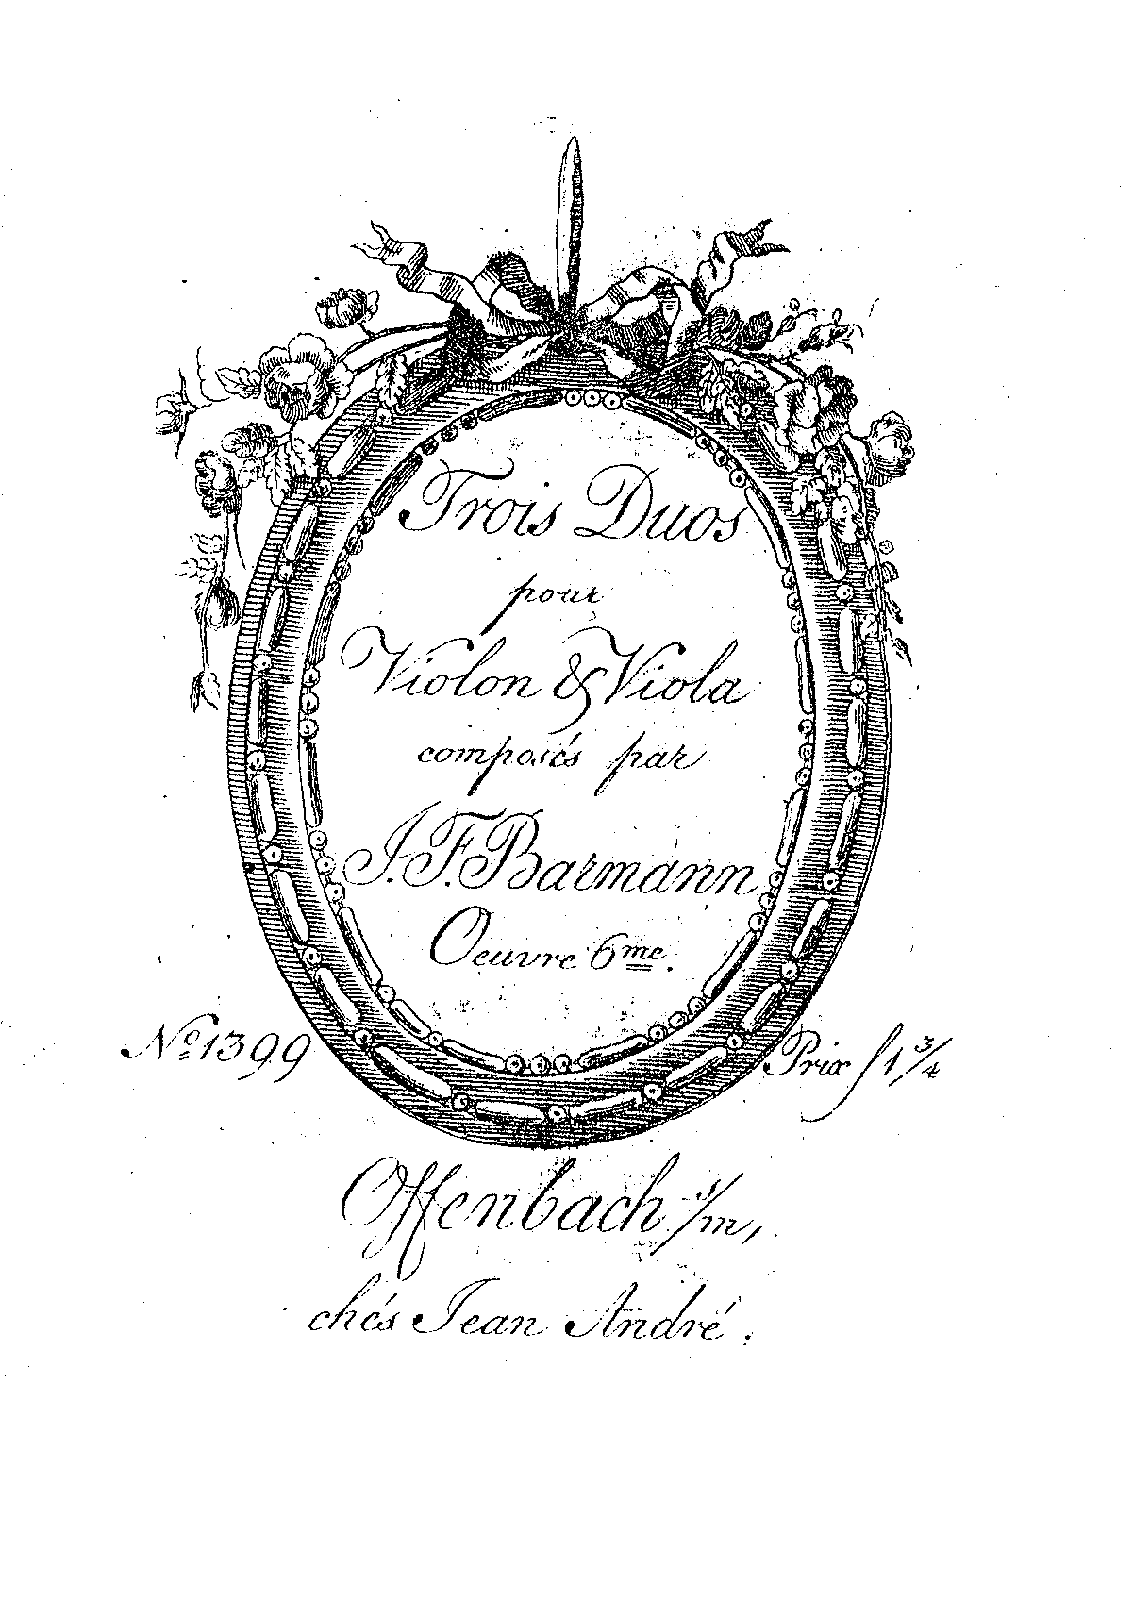 Trois Duos
pour
Violon & Viola
composés par
J. F. Barmann
Oeuvre 6me.
No. 1399
Prix f 1 3/4
Offenbach s/m,
chés Jean André.